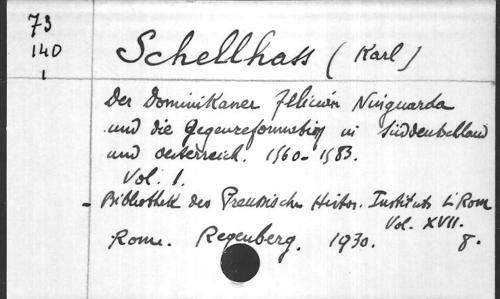 73
140
1
Schellhass (Karl)
Der Dominikaner Felician Ninguarda
und die Gegenreformation in Süddeutschland
und Oesterreich. 1560-1583.
Vol. 1.
- Bibliothek des Preussische Histor. Instituts in Rom
Vol. XVII.
Rome. Regenberg. 1930. 8.